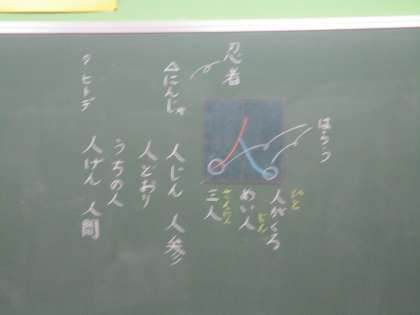 はらう
ひと
人がくる
じん
めい人
さんにん
三人
人
忍者
△にんじゃ
人じん 人参
人どおり
うちの人
人げん 人間
ヒトデ